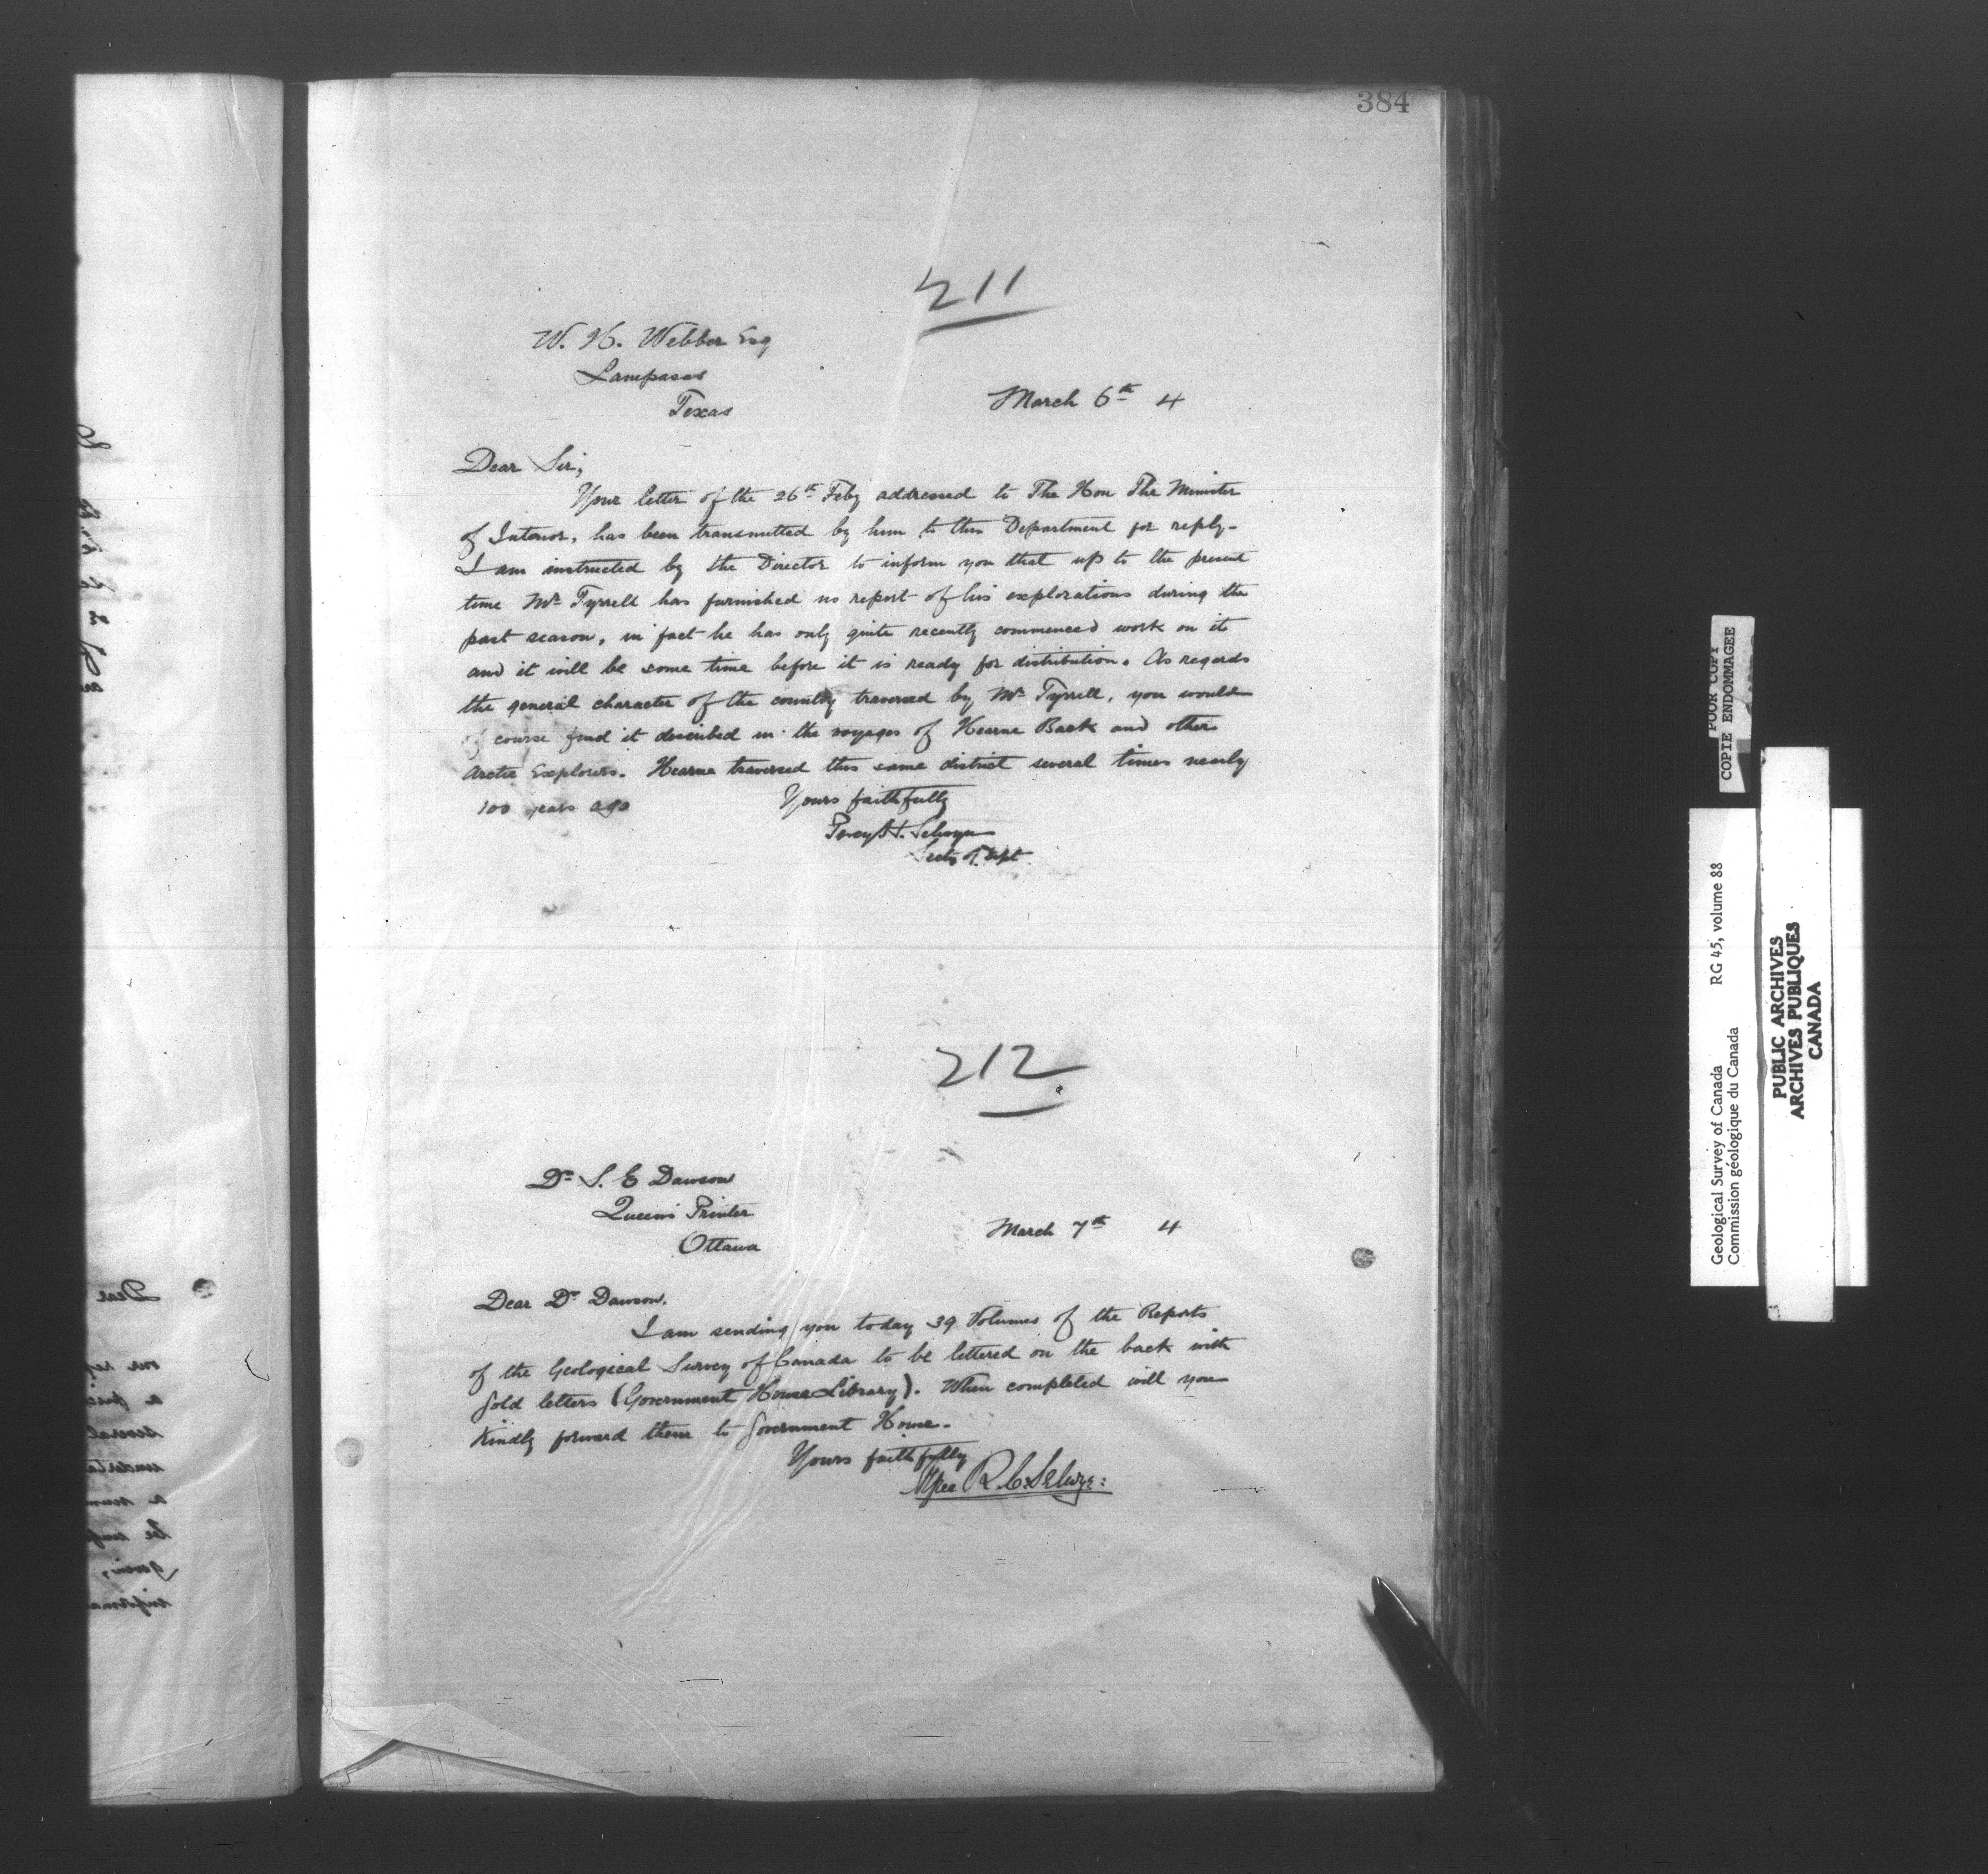 384
211
W. H. Webber Esq
Lampasas
Texas
March 6th 4
Dear Sir,
Your letter of the 26th Feby addressed to The Hon The Minister
of Interior, has been transmitted by him to this Department for reply-
I am instructed by the Director to inform you that up to the present
time Mr Tyrrell has furnished no report of his explorations during the
past season, in fact he has only quite recently commenced work on it
and it will be some time before it is ready for distribution. As regards
the general character of the country traversed by Mr Tyrrell, you would
of course find it described in the voyages of Hearne Back and other
Arctic Explorers. Hearne traversed this same district several times nearly
100 years ago
Yours faithfully
Percy H. Selwyn
Secty of Dept
212
Dr S. E Dawson
Queens Printer
Ottawa
March 7th 4
Dear Dr Dawson.
I am sending you today 39 Volumes of the Reports
of the Geological Survey of Canada to be lettered on the back with
gold letters (Government House Library). When completed will you
kindly forward them to Government House.
Yours faithfully
R. C. Selwyn
Dear
POOR COPY
COPIE ENDOMMAGEE
Geological Survey of Canada RG 45, volume 88
Commission géologique du Canada
PUBLIC ARCHIVES
ARCHIVES PUBLIQUES
CANADA